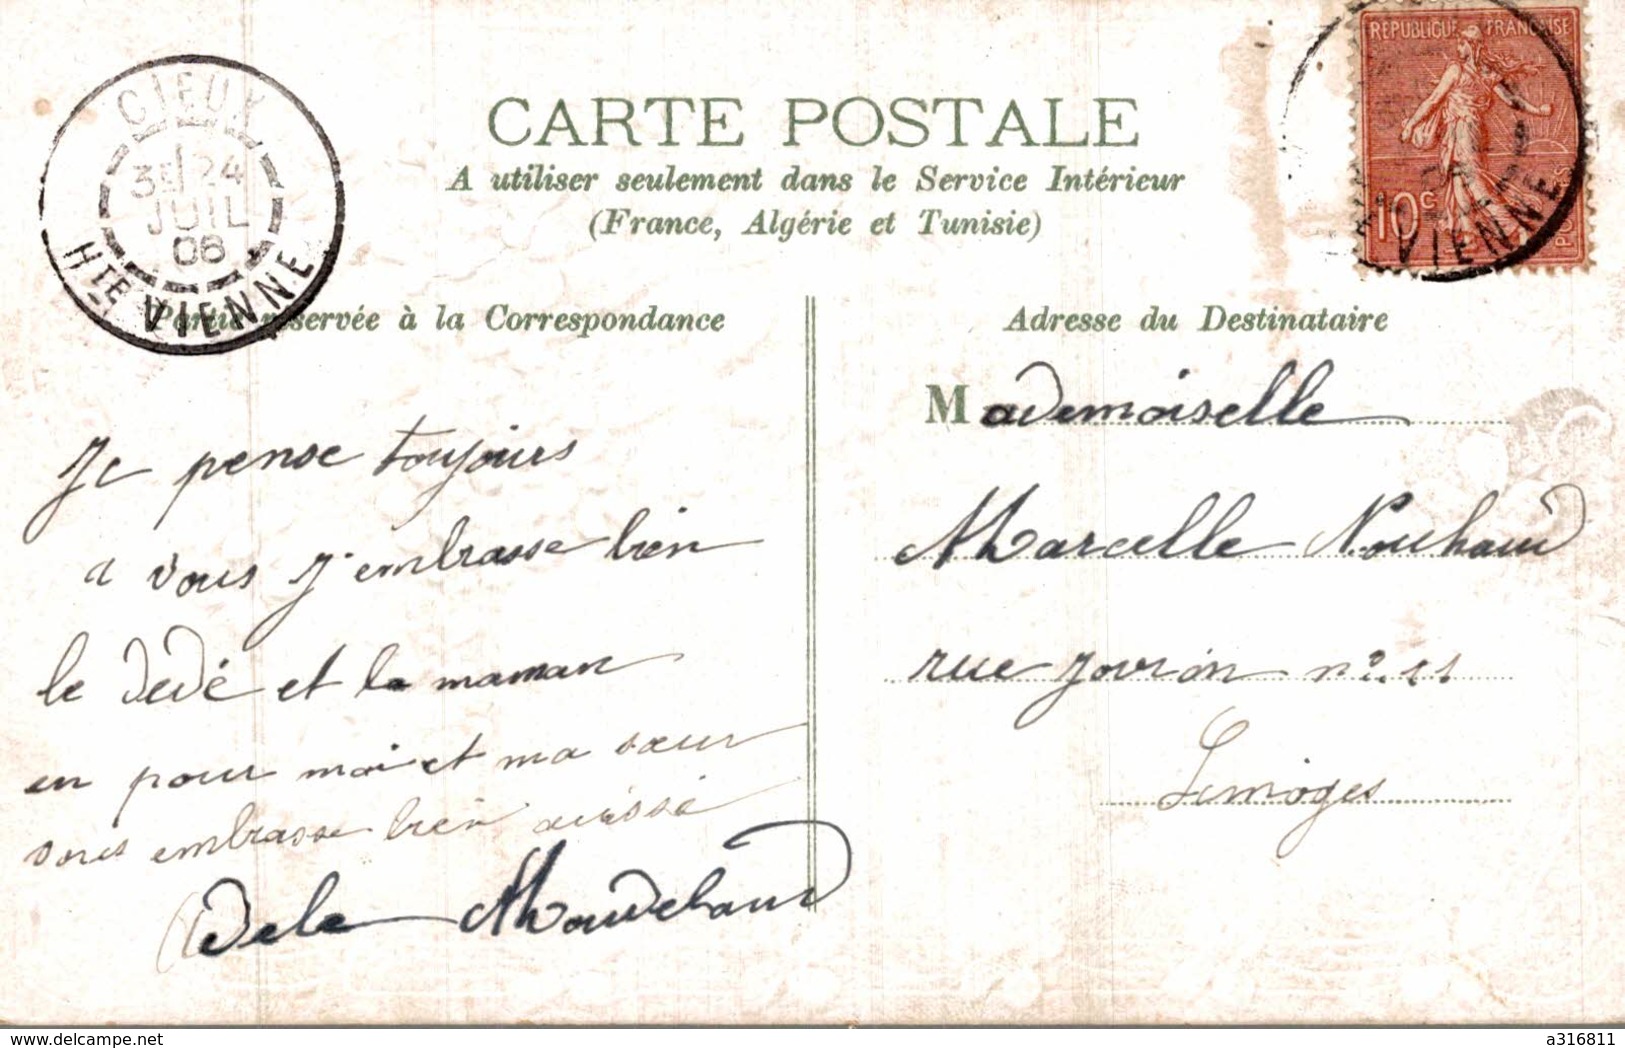 CIEUX
3E 24
JUIL
06
Hte VIENNE
REPUBLIQUE FRANÇAISE
10c
POSTES
VIENNE
CARTE POSTALE
A utiliser seulement dans le Service Intérieur
(France, Algérie et Tunisie)
Partie réservée à la Correspondance
Je pense toujours
a vous j'embrasse bien
le dedé et la maman
en pour moi et ma sœur
vous embrasse bien aussi
Adele
Adresse du Destinataire
Mademoiselle
Marcelle Nouhaud
rue Jovion n° 11
Limoges
delcampe.net
a316811